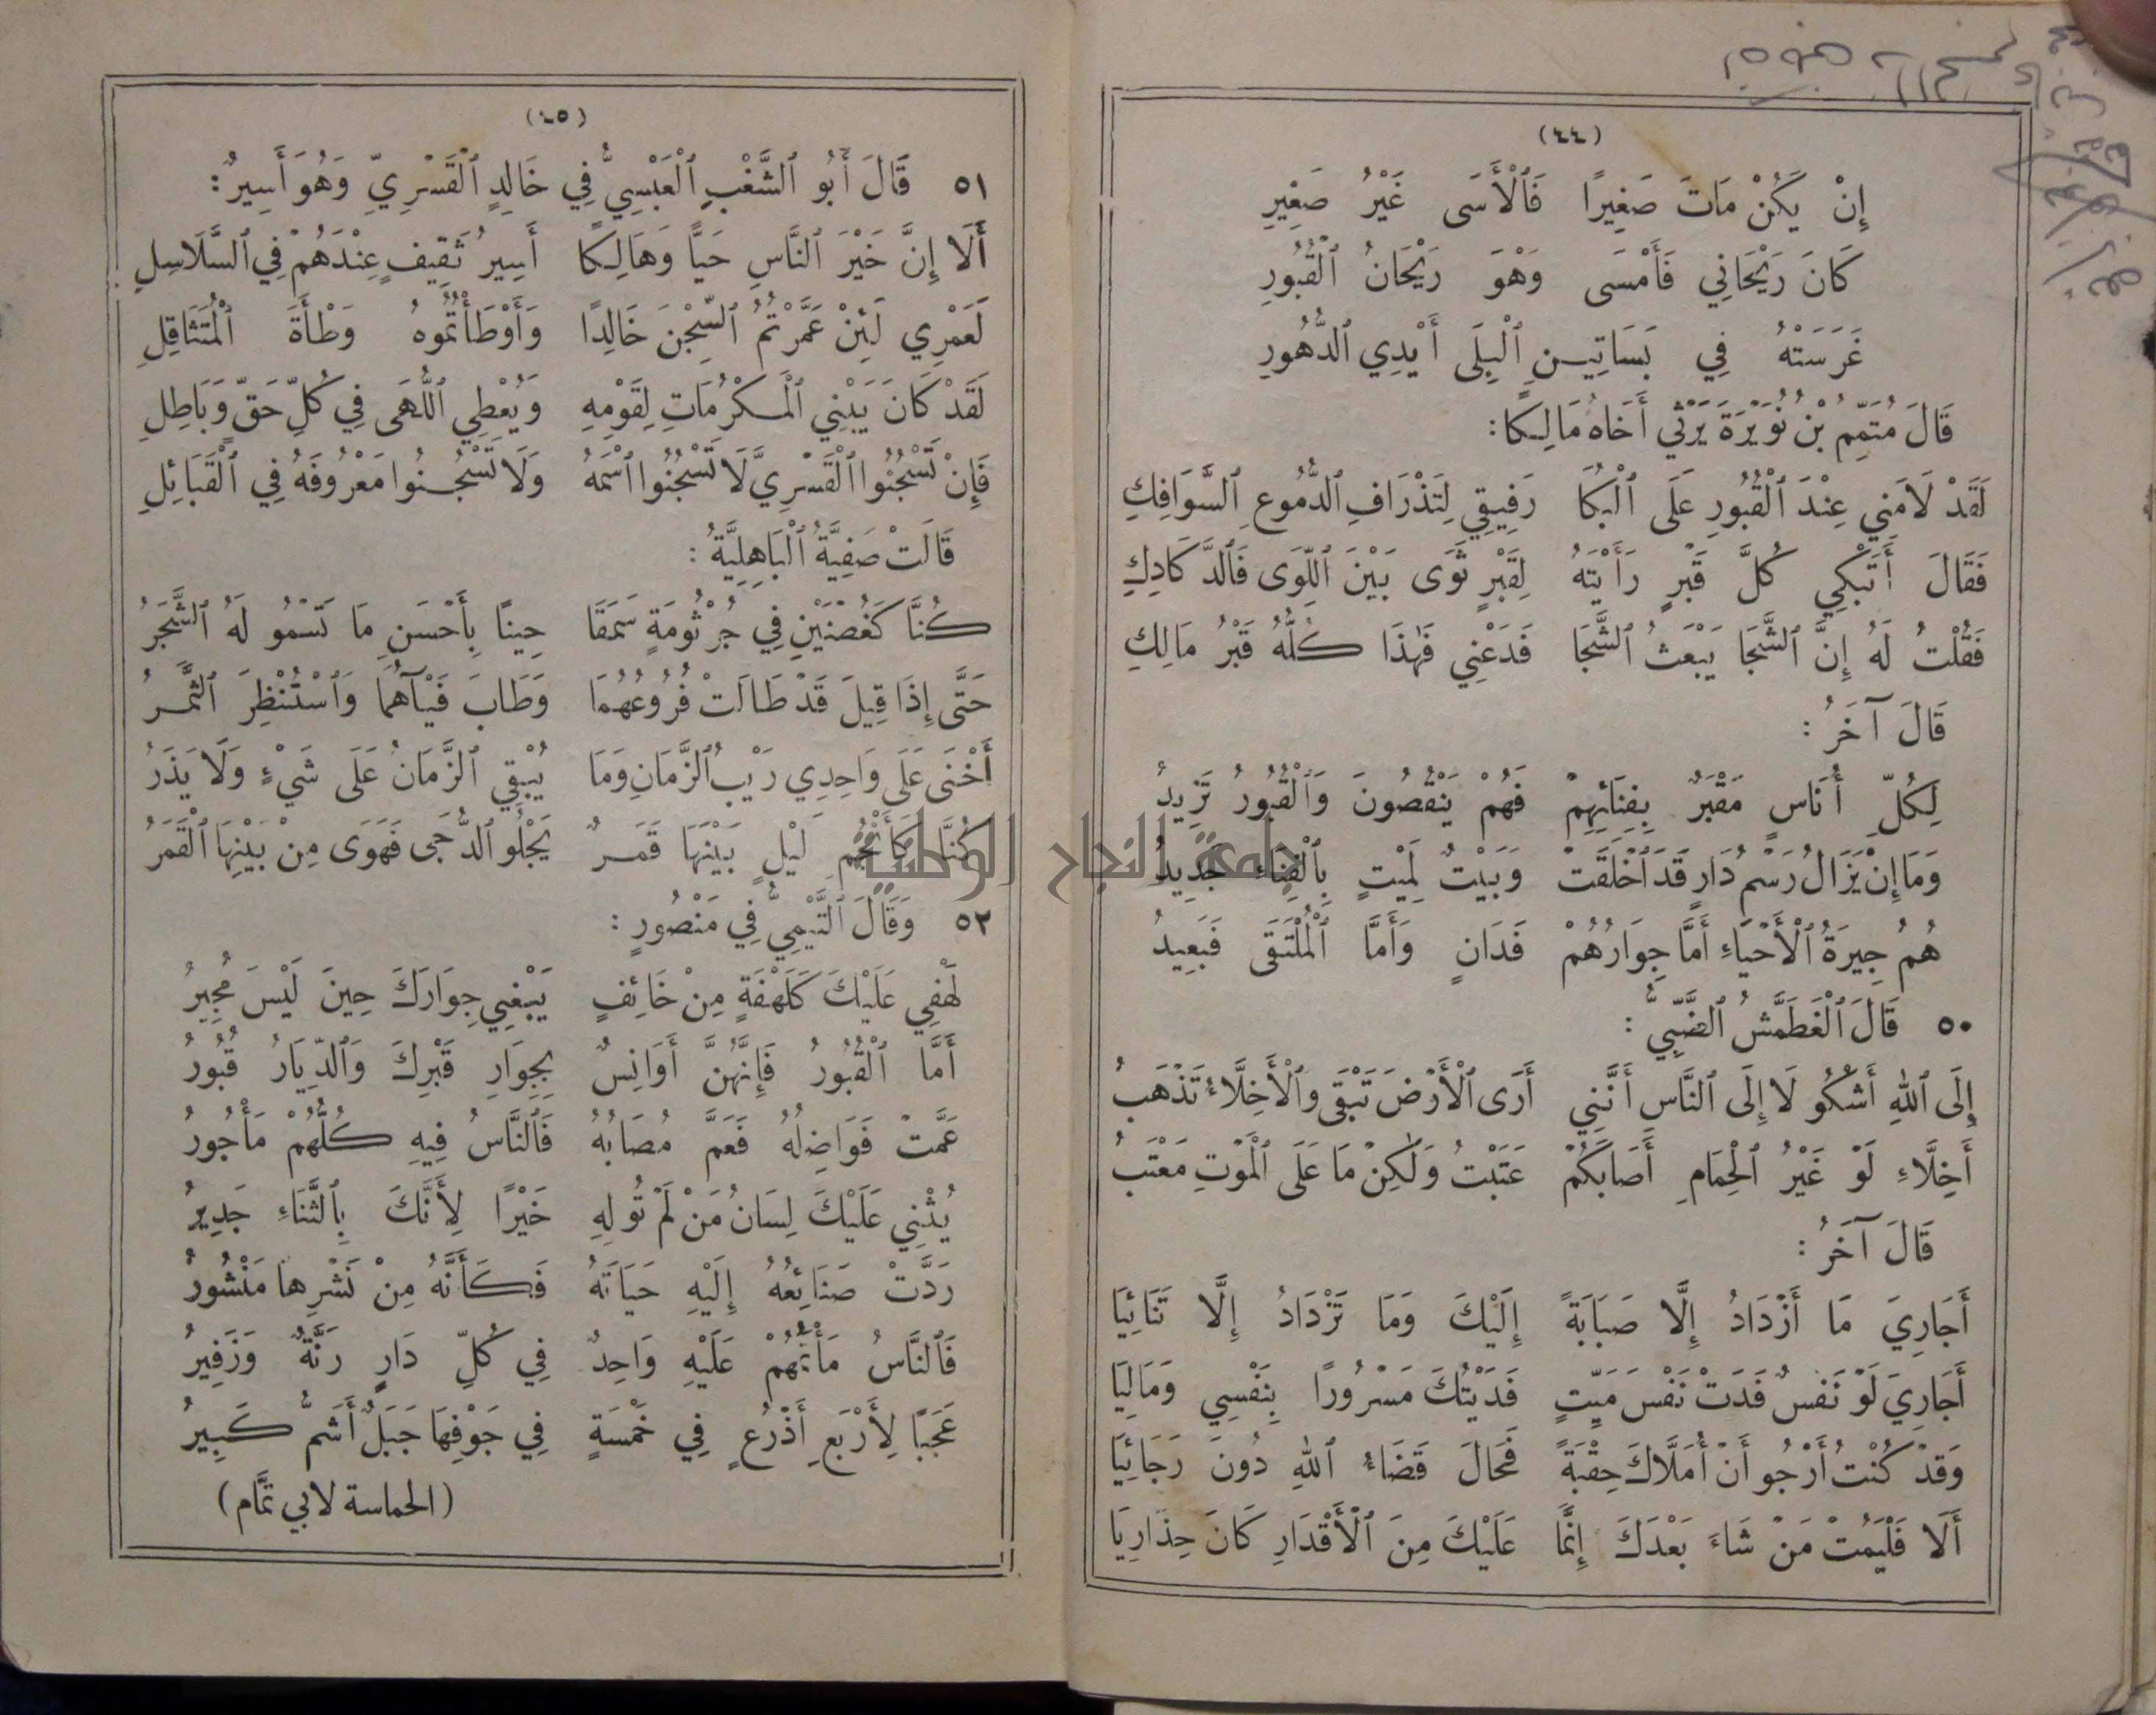 (٤٤)
إِنْ يَكُنْ مَاتَ صَغِيرًا فَٱلْأَسَى غَيْرُ صَغِيرِ
كَانَ رَيْحَانِي فَأَمْسَى وَهْوَ رَيْحَانُ ٱلْقُبُورِ
غَرَسَتْهُ فِي بَسَاتِينِ ٱلْبِلَى أَيْدِي ٱلدُّهُورِ
قَالَ مُتَمِّمُ بْنُ نُوَيْرَةَ يَرْثِي أَخَاهُ مَالِكًا:
لَقَدْ لَامَنِي عِنْدَ ٱلْقُبُورِ عَلَى ٱلْبُكَا رَفِيقِي لِتَذْرَافِ ٱلدُّمُوعِ ٱلسَّوَافِكِ
فَقَالَ أَتَبْكِي كُلَّ قَبْرٍ رَأَيْتَهُ لِقَبْرٍ ثَوَى بَيْنَ ٱللِّوَى فَٱلدَّكَادِكِ
فَقُلْتُ لَهُ إِنَّ ٱلشَّجَا يَبْعَثُ ٱلشَّجَا فَدَعْنِي فَهٰذَا كُلُّهُ قَبْرُ مَالِكِ
قَالَ آخَرُ:
لِكُلِّ أُنَاسٍ مَقْبَرٌ بِفِنَائِهِمْ فَهُمْ يَنْقُصُونَ وَٱلْقُبُورُ تَزِيدُ
وَمَا إِنْ يَزَالُ رَسْمُ دَارٍ قَدَ ٱخْلَقَتْ وَبَيْتٌ لِمَيْتٍ بِٱلْفِنَاءِ جَدِيدُ
هُمُ جِيرَةُ ٱلْأَحْيَاءِ أَمَّا جِوَارُهُمْ فَدَانٍ وَأَمَّا ٱلْمُلْتَقَى فَبَعِيدُ
٥٠ قَالَ ٱلْغَطَمَّشُ ٱلضَّبِّيُّ:
إِلَى ٱللهِ أَشْكُو لَا إِلَى ٱلنَّاسِ أَنَّنِي أَرَى ٱلْأَرْضَ تَبْقَى وَٱلْأَخِلَّاءُ تَذْهَبُ
أَخِلَّاءِ لَوْ غَيْرُ ٱلْحِمَامِ أَصَابَكُمْ عَتَبْتُ وَلٰكِنْ مَا عَلَى ٱلْمَوْتِ مَعْتَبُ
قَالَ آخَرُ:
أَجَارِيَ مَا أَزْدَادُ إِلَّا صَبَابَةً إِلَيْكَ وَمَا تَزْدَادُ إِلَّا تَنَائِيَا
أَجَارِيَ لَوْ نَفْسٌ فَدَتْ نَفْسَ مَيِّتٍ فَدَيْتُكَ مَسْرُورًا بِنَفْسِي وَمَالِيَا
وَقَدْ كُنْتُ أَرْجُو أَنْ أُمَلَّاكَ حِقْبَةً فَحَالَ قَضَاءُ ٱللهِ دُونَ رَجَائِيَا
أَلَا فَلْيَمُتْ مَنْ شَاءَ بَعْدَكَ إِنَّمَا عَلَيْكَ مِنَ ٱلْأَقْدَارِ كَانَ حِذَارِيَا
(٤٥)
٥١ قَالَ أَبُو ٱلشَّغْبِ ٱلْعَبْسِيُّ فِي خَالِدٍ ٱلْقَسْرِيِّ وَهُوَ أَسِيرٌ:
أَلَا إِنَّ خَيْرَ ٱلنَّاسِ حَيًّا وَهَالِكًا أَسِيرُ ثَقِيفٍ عِنْدَهُمْ فِي ٱلسَّلَاسِلِ
لَعَمْرِي لَئِنْ عَمَّرْتُمُ ٱلسِّجْنَ خَالِدًا وَأَوْطَأْتُمُوهُ وَطْأَةَ ٱلْمُتَثَاقِلِ
لَقَدْ كَانَ يَبْنِي ٱلْمَكْرُمَاتِ لِقَوْمِهِ وَيُعْطِي ٱللُّهَى فِي كُلِّ حَقٍّ وَبَاطِلِ
فَإِنْ تَسْجُنُوا ٱلْقَسْرِيَّ لَا تَسْجُنُوا ٱسْمَهُ وَلَا تَسْجُنُوا مَعْرُوفَهُ فِي ٱلْقَبَائِلِ
قَالَتْ صَفِيَّةُ ٱلْبَاهِلِيَّةُ:
كُنَّا كَغُصْنَيْنِ فِي جُرْثُومَةٍ سَمَقَا حِينًا بِأَحْسَنِ مَا تَسْمُو لَهُ ٱلشَّجَرُ
حَتَّى إِذَا قِيلَ قَدْ طَالَتْ فُرُوعُهُمَا وَطَابَ فَيْآهُمَا وَٱسْتُنْظِرَ ٱلثَّمَرُ
أَخْنَى عَلَى وَاحِدِي رَيْبُ ٱلزَّمَانِ وَمَا يُبْقِي ٱلزَّمَانُ عَلَى شَيْءٍ وَلَا يَذَرُ
كُنَّا كَأَنْجُمِ لَيْلٍ بَيْنَهَا قَمَرٌ يَجْلُو ٱلدُّجَى فَهَوَى مِنْ بَيْنِهَا ٱلْقَمَرُ
جامعة النجاح الوطنية
٥٢ وَقَالَ ٱلتَّيْمِيُّ فِي مَنْصُورٍ:
لَهْفِي عَلَيْكَ كَلَهْفَةٍ مِنْ خَائِفٍ يَبْغِي جِوَارَكَ حِينَ لَيْسَ مُجِيرُ
أَمَّا ٱلْقُبُورُ فَإِنَّهُنَّ أَوَانِسٌ بِجِوَارِ قَبْرِكَ وَٱلدِّيَارُ قُبُورُ
عَمَّتْ فَوَاضِلُهُ فَعَمَّ مُصَابُهُ فَٱلنَّاسُ فِيهِ كُلُّهُمْ مَأْجُورُ
يُثْنِي عَلَيْكَ لِسَانُ مَنْ لَمْ تُولِهِ خَيْرًا لِأَنَّكَ بِٱلثَّنَاءِ جَدِيرُ
رَدَّتْ صَنَائِعُهُ إِلَيْهِ حَيَاتَهُ فَكَأَنَّهُ مِنْ نَشْرِهَا مَنْشُورُ
فَٱلنَّاسُ مَأْتَمُهُمْ عَلَيْهِ وَاحِدٌ فِي كُلِّ دَارٍ رَنَّةٌ وَزَفِيرُ
عَجَبًا لِأَرْبَعِ أَذْرُعٍ فِي خَمْسَةٍ فِي جَوْفِهَا جَبَلٌ أَشَمُّ كَبِيرُ
(الحماسة لابي تمَّام)